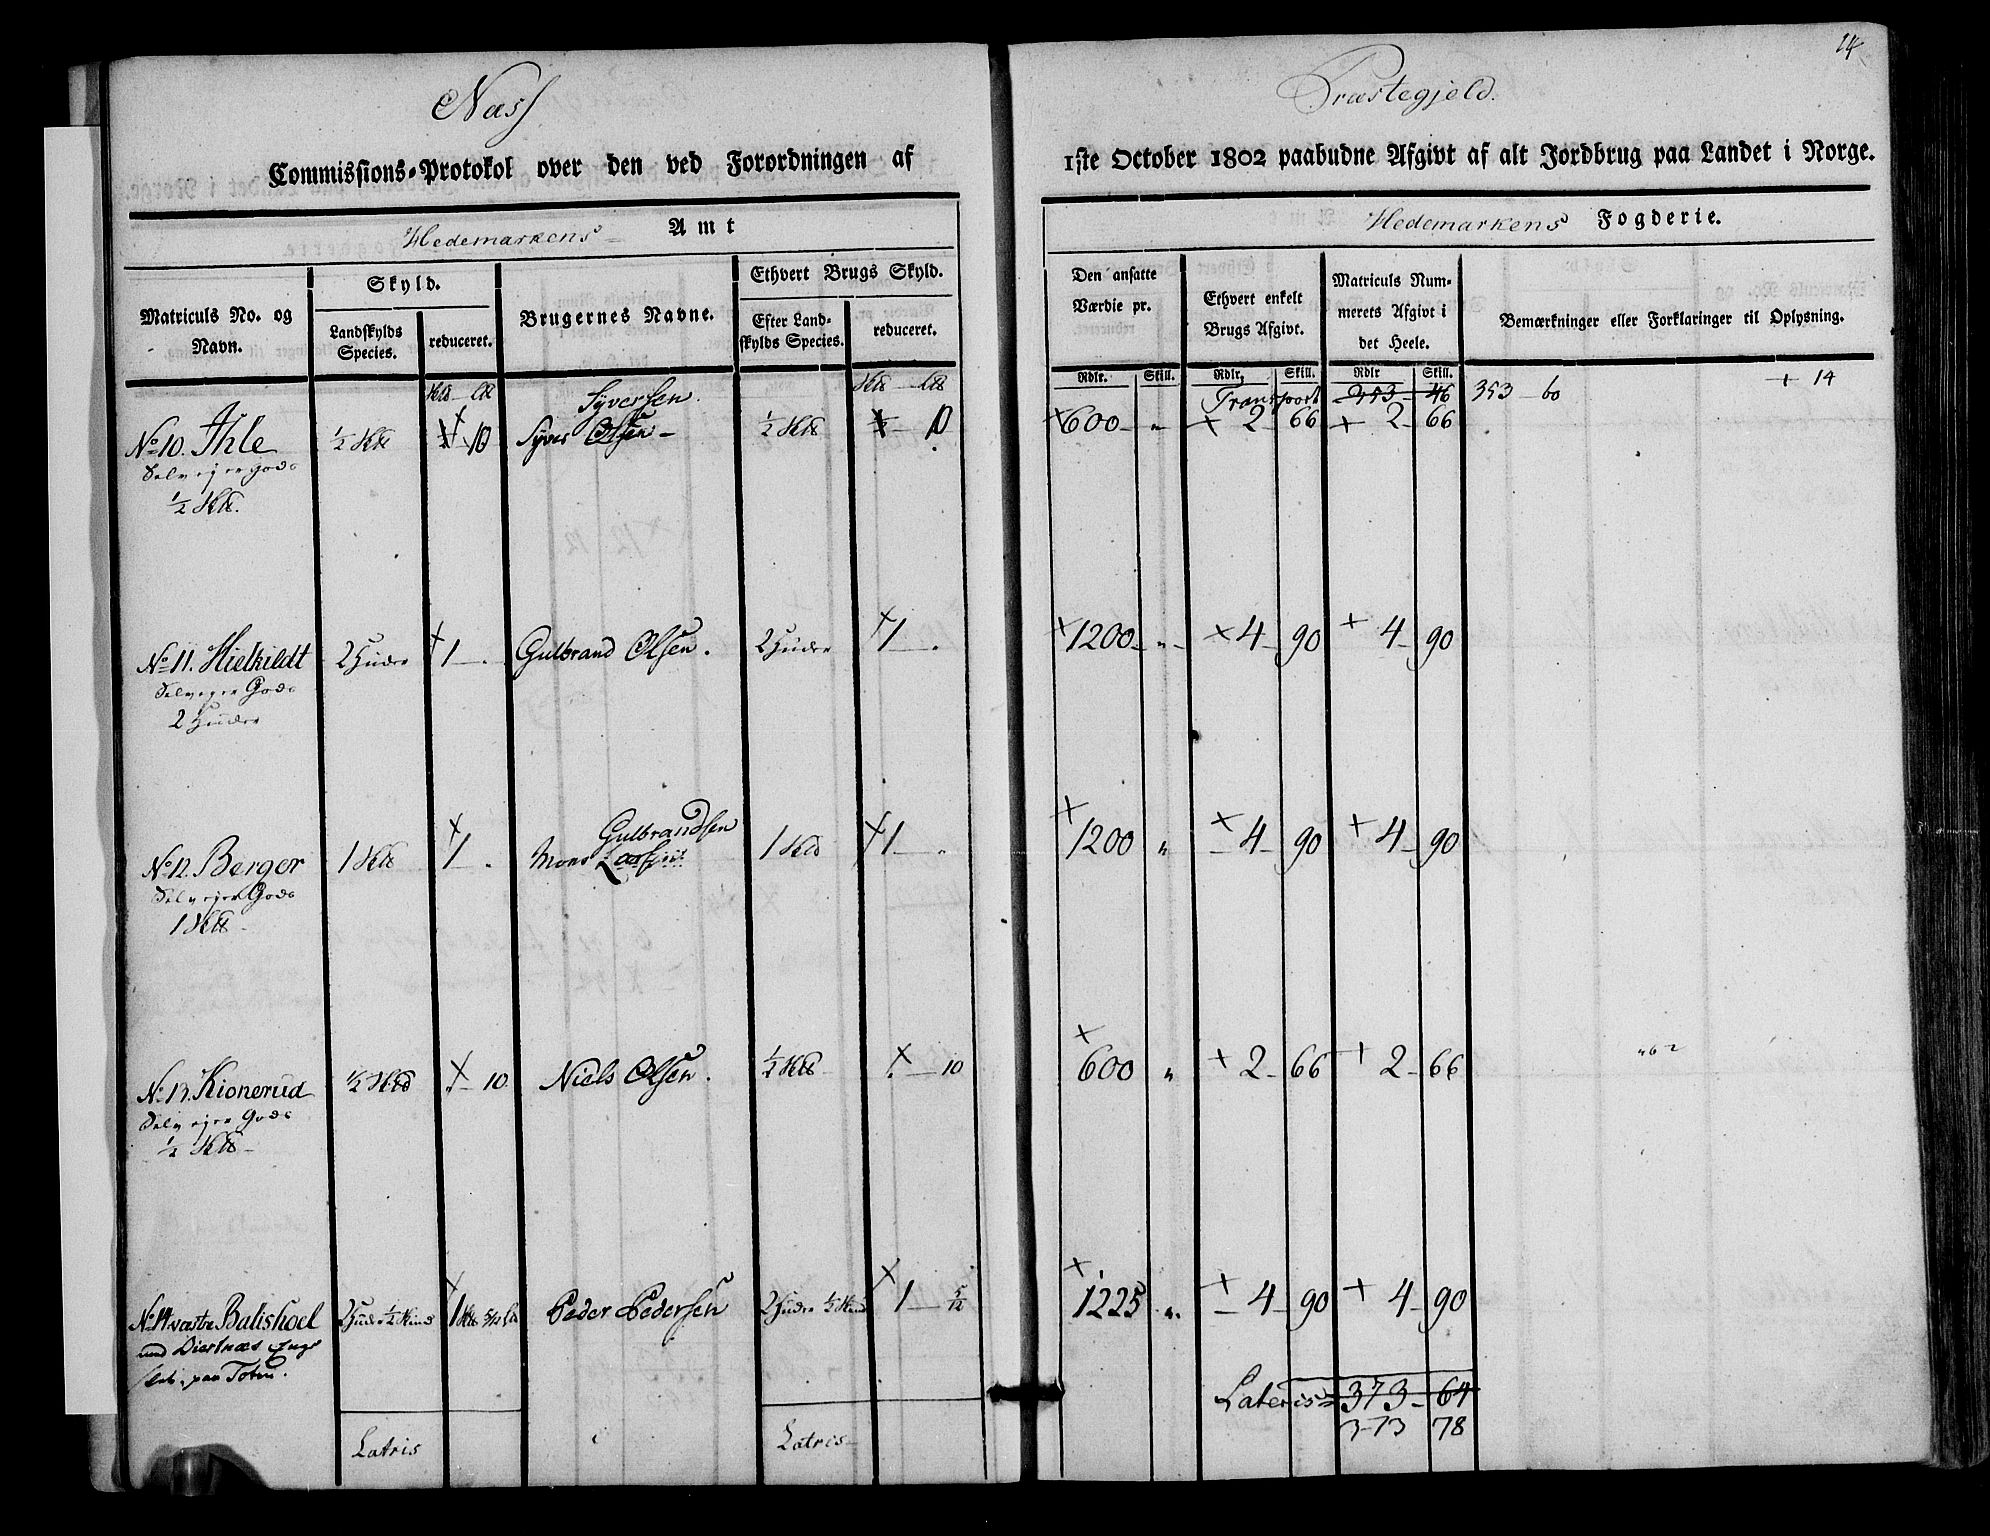 14
Næss Præstegjeld.
Commissions-Protokol over den ved Forordningen af 1ste October 1802 paabudne Afgivt af alt Jordbrug paa Landet i Norge.
Hedemarkens Amt
Hedemarkens Fogderie.
Matriculs No. og Navn.
Skyld.
Landskylds Species.
reduceret.
Brugernes Navne.
Ethvert Brugs Skyld.
Efter Landskylds Species.
reduceret.
Den ansatte Værdie pr.
Ethvert enkelt Brugs Afgivt.
Matriculs Nummerets Afgivt i det Heele.
Bemærkninger eller Forklaringer til Oplysning.
Rdlr. Skill. Rdlr. Skill. Rdlr Skill.
Transport 353 46 353 60 + 14
Syversen.
No 10. Ihle ½ 10 Syver Olsen ½ 10 600 " 2 66 2 66
Selvejergods
½
No 11. Hielkildt 2 Huder 1 Gulbrand Olsen. 2 Huder 1 1200 " 4 90 4 90
Selvejer Gods
2 Huder
Gulbrandsen
No 12. Berger 1 1 Mons 1 1 1200 " 4 90 4 90
Selvejer Gods
1
No 13. Kionerud ½ 10 Niels Olsen. ½ 10 600 " 2 66 2 66
Selvejer Gods
½
No 14 vestre Balishoel 2 Huder ½ 1 5/12 Peder Pedersen 2 Huder ½ 1 5/12 1225 " 4 90 4 90
paa Toten.
Lateris 373 64
373 78
Latris
Latris